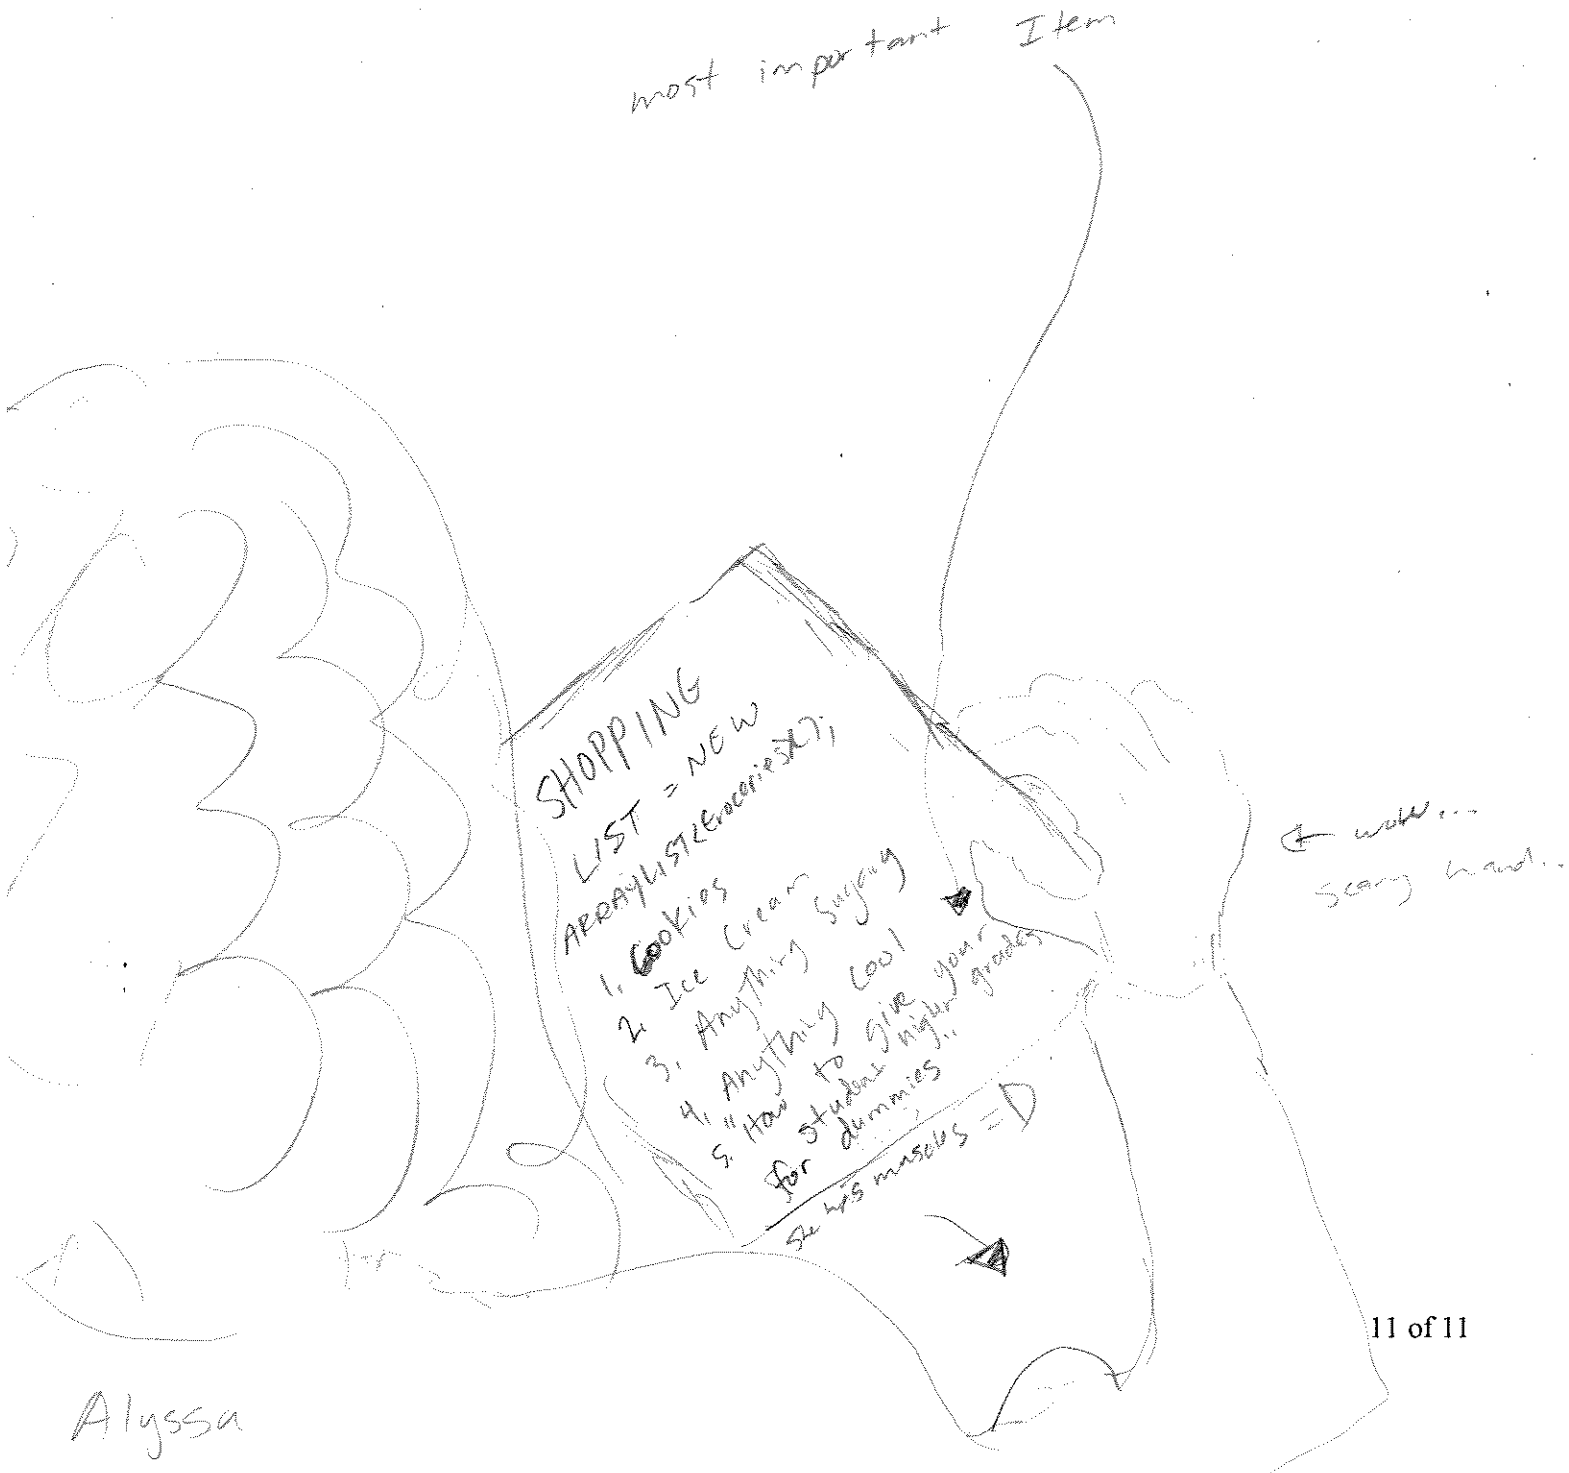 most important Item
SHOPPING
LIST = NEW
ARRAYLIST<Groceries>();
1. Cookies
2. Ice Cream
3. Anything Sugary
4. Anything Cool
5. "How to give your
student higher grades
for dummies"
muscles = D
scary hand..
11 of 11
Alyssa